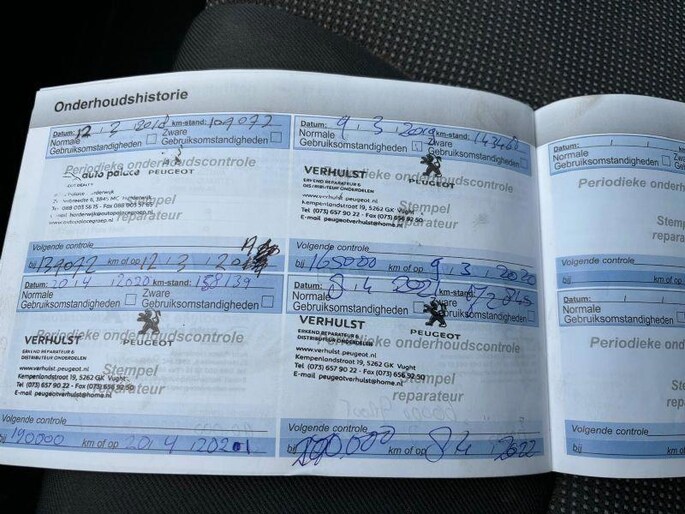 Onderhoudshistorie
Datum: 12 . 3 . 2018 km-stand: 109072
Normale Zware
Gebruiksomstandigheden Gebruiksomstandigheden
Periodieke onderhoudscontrole
auto palace PEUGEOT
Stempel
reparateur
Volgende controle
bij 139072 km of op 12 . 3 . 20
Datum: 9 . 3 . 2019 km-stand:
Normale Zware
Gebruiksomstandigheden Gebruiksomstandigheden
Periodieke onderhoudscontrole
VERHULST PEUGEOT
ERKEND REPARATEUR &
DISTRIBUTEUR ONDERDELEN
www.verhulst.peugeot.nl
Kempenlandstraat 19, 5262 GK Vught
Tel. (073) 657 90 22 - Fax (073) 656 92 50
E-mail peugeotverhulst@home.nl
Stempel
reparateur
Volgende controle
bij 165000 km of op 9 . 3 . 2020
20 . 4 . 2020 158139
Normale Zware
Gebruiksomstandigheden Gebruiksomstandigheden
Periodieke onderhoudscontrole
VERHULST PEUGEOT
ERKEND REPARATEUR &
DISTRIBUTEUR ONDERDELEN
www.verhulst.peugeot.nl
Kempenlandstraat 19, 5262 GK Vught
Tel. (073) 657 90 22 - Fax (073) 656 92 50
E-mail peugeotverhulst@home.nl
Stempel
reparateur
Volgende controle
bij 190000 km of op 20 . 4 . 2021
Datum: 8 . 4 . 2021 km-stand: 172845
Normale Zware
Gebruiksomstandigheden Gebruiksomstandigheden
Periodieke onderhoudscontrole
VERHULST PEUGEOT
ERKEND REPARATEUR &
DISTRIBUTEUR ONDERDELEN
www.verhulst.peugeot.nl
Kempenlandstraat 19, 5262 GK Vught
Tel. (073) 657 90 22 - Fax (073) 656 92 50
E-mail peugeotverhulst@home.nl
Stempel
reparateur
Volgende controle
bij 200.000 km of op 8 4 . 2022
Datum: / /
Normale
Gebruiksomstandigheden
Periodieke onderh
Stem
reparat
Volgende controle
bij km of op
Datum: / /
Normale
Gebruiksomstandigheden
Periodieke onder
Ste
repara
Volgende controle
bij km of op